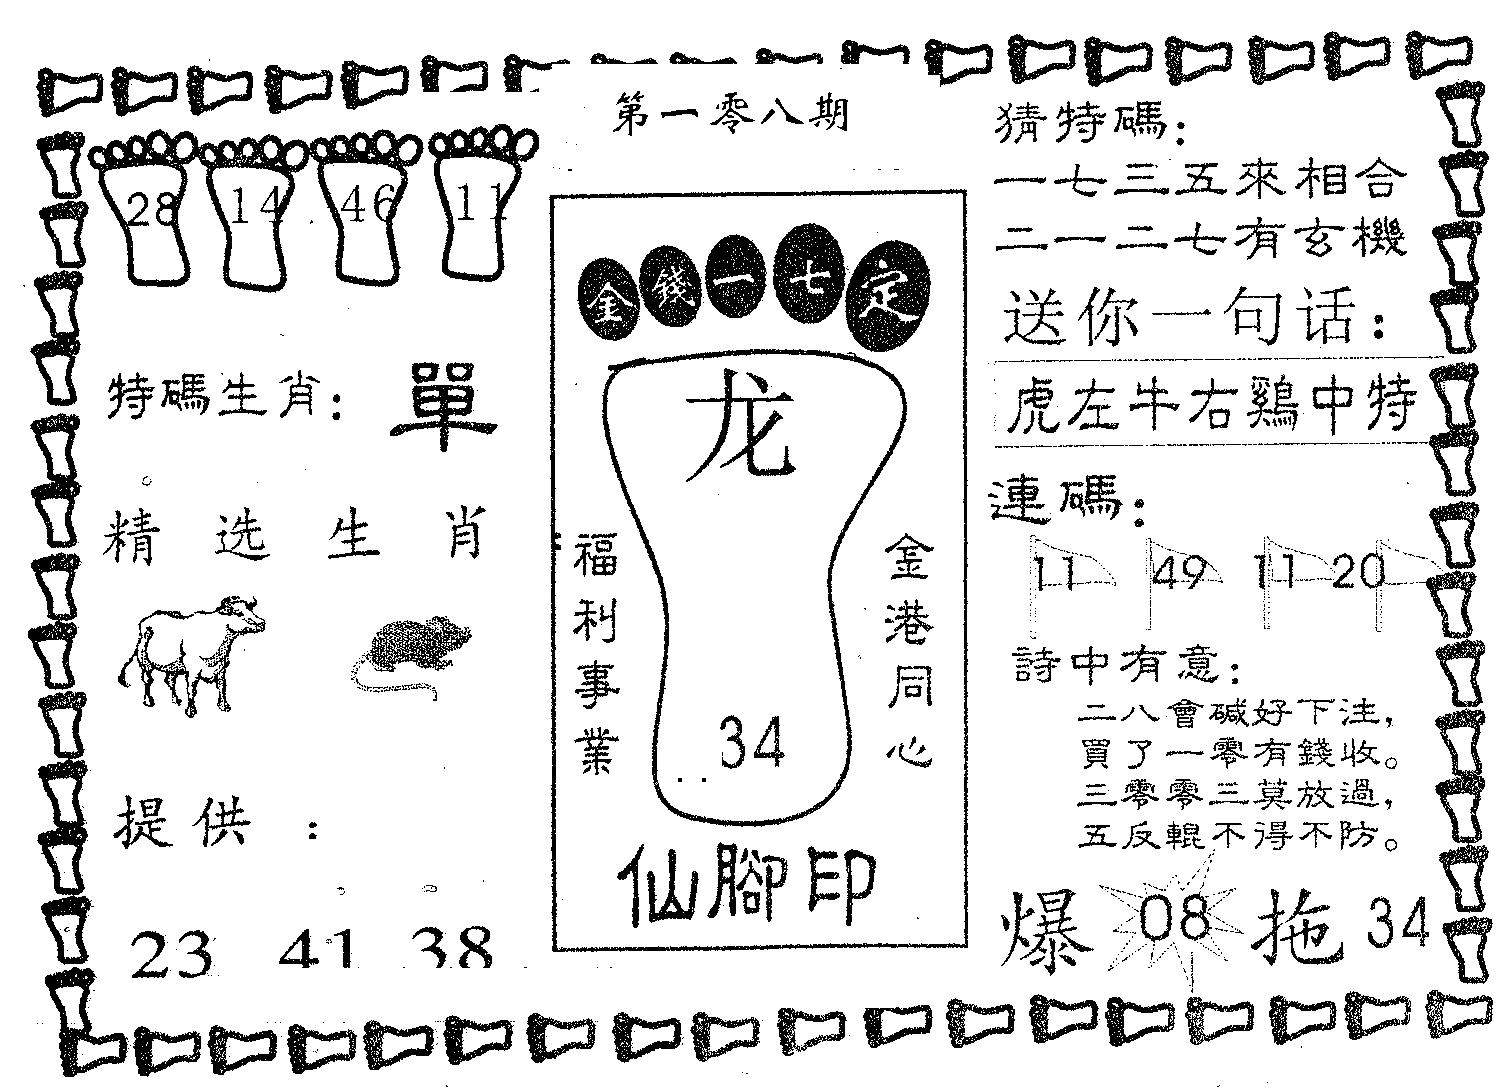 第一零八期
28 14 46 11
特碼生肖：單
精选生肖
提供：
23 41 38
金錢一七定
龙
福利事業
金港同心
34
仙腳印
猜特碼：
一七三五來相合
二一二七有玄機
送你一句话：
虎左牛右鷄中特
連碼：
11 49 11 20
詩中有意：
二八會碱好下注，
買了一零有錢收。
三零零三莫放過，
五反輥不得不防。
爆 08 拖 34